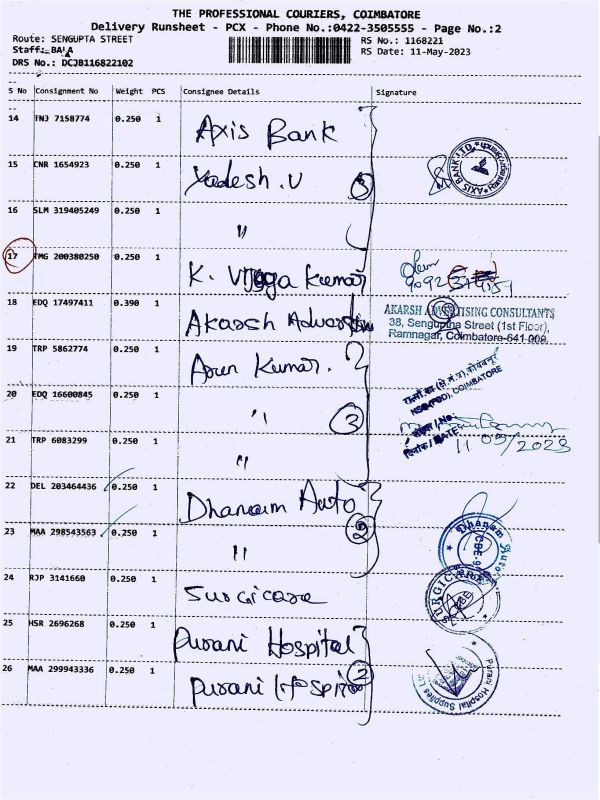 THE PROFESSIONAL COURIERS, COIMBATORE
Delivery Runsheet - PCX - Phone No.:0422-3505555 - Page No.:2
Route: SENGUPTA STREET
RS No.: 1168221
Staff: BALA
RS Date: 11-May-2023
DRS No.: DCJB116822102
S No Consignment No Weight PCS Consignee Details Signature
14 TNJ 7158774 0.250 1 Axis Bank
15 CNR 1654923 0.250 1 Yadesh.V 3
AXIS BANK LTD.
16 SLM 319405249 0.250 1 "
17 TMG 200380250 0.250 1 K. Vijaya Kumar
18 EDQ 17497411 0.390 1 Akarsh
AKARSH ADVERTISING CONSULTANTS
38, Sengupta Street (1st Floor),
Ramnagar, Coimbatore-641 009.
19 TRP 5862774 0.250 1 Arun Kumar.
20 EDQ 16600845 0.250 1 " 3
COIMBATORE
दिनांक / DATE 11 05/2023
21 TRP 6083299 0.250 1 "
22 DEL 203464436 0.250 1 Dhanam Auto 2
23 MAA 298543563 0.250 1 "
Dhanam Auto
24 RJP 3141660 0.250 1 Surgicare
SURGICARE
25 HSR 2696268 0.250 1 Purani Hospital
26 MAA 299943336 0.250 1 Purani Hospital 2
Purani Hospital Supplies